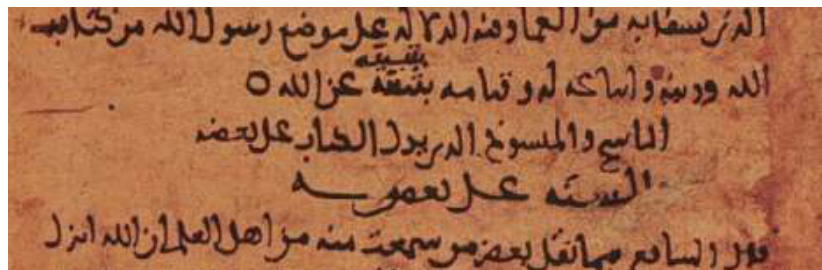 وفيه الدلالة على موضع رسول الله من كتاب
الله ودينه واتباعه له وقيامه بتبيينه عن الله ٥
الناسخ والمنسوخ الذي يدل الكتاب على بعضه
والسنة على بعضه
قال الشافعي مما نقل بعض من سمعت منه من اهل العلم ان الله انزل